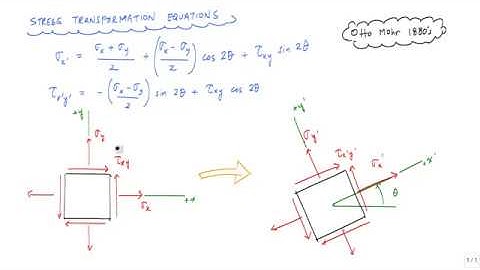 STRESS TRANSFORMATION EQUATIONS
Otto Mohr 1880's
σx' = σx + σy / 2 + (σx - σy / 2) cos 2θ + τxy sin 2θ
τx'y' = -(σx - σy / 2) sin 2θ + τxy cos 2θ
+y
σy
τxy
σx
+x
+y'
σy'
τx'y'
σx'
+x'
θ
1/1